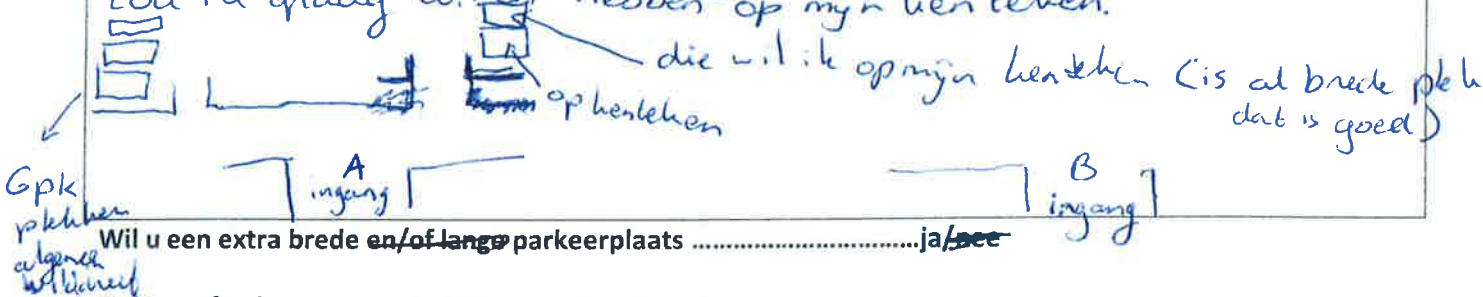 zou ik graag willen hebben op mijn kenteken.
die wil ik op mijn kenteken (is al brede plek
dat is goed)
op kenteken
Gpk
plekken
algemeen
A
ingang
B
ingang
Wil u een extra brede en/of lange parkeerplaats ................................ja/nee